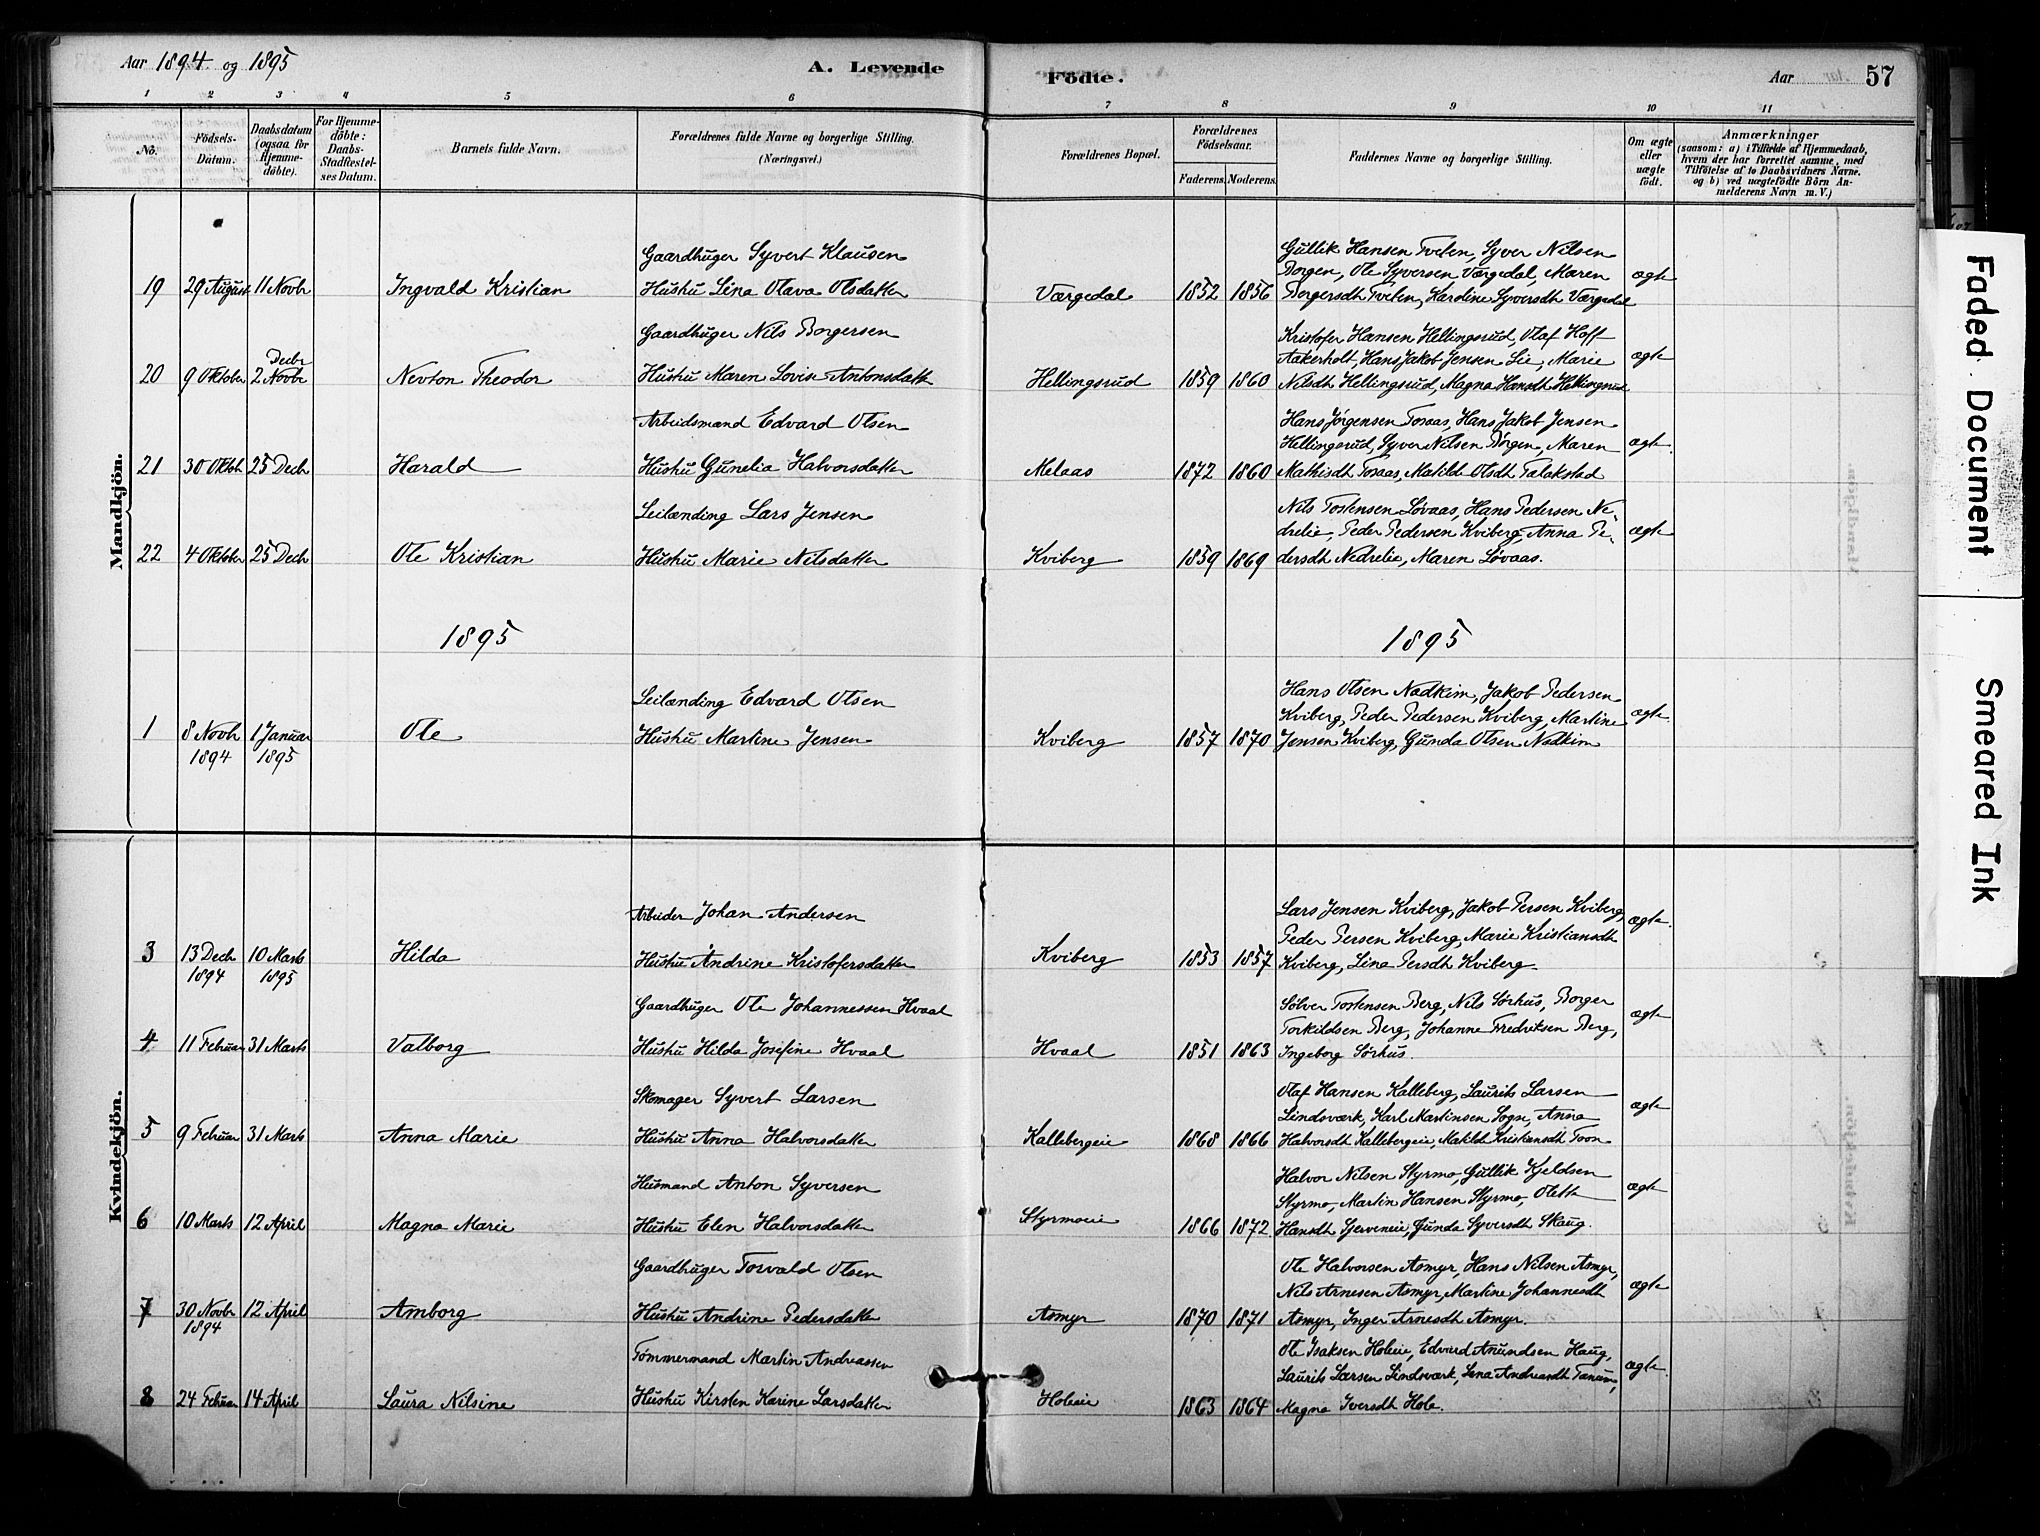 Aar 1894 og 1895
A. Levende
Födte.
Aar
57
1 2 3 4 5 6 7 8 9 10 11
No.
Födsels-Datum.
Daabsdatum (ogsaa for Hjemme-döbte).
For Hjemme-döbte: Daabs-Stadfestel-ses Datum.
Barnets fulde Navn.
Forældrenes fulde Navne og borgerlige Stilling. (Næringsvei.)
Forældrenes Bopæl.
Forældrenes Födselsaar.
Faderens. Moderens.
Faddernes Navne og borgerlige Stilling.
Om ægte eller uægte födt.
Anmærkninger
(saasom: a) i Tilfælde af Hjemmedaab, hvem der har forrettet samme, med Tilföielse af to Daabsvidners Navne, og b) ved uægtefödte Börn An-melderens Navn m. V.)
Mandkjön.
Gaardbruger Syvert Klausen
Gullik Hansen Tveten, Syver Nilsen
Borgen, Ole Syversen Værgedal, Maren
ægte
19 29 August 11 Novbr Ingvald Kristian Hustru Lina Olava Olsdatter Værgedal 1852 1856 Borgersdtr Tveten, Karoline Syversdtr Værgedal
Gaardbruger Nils Borgersen
Kristofer Hansen Hellingsrud, Olaf Hoff
Decbr
Aakerholt, Hans Jakob Jensen Lie, Marie
ægte
20 9 Oktober 2 Novbr Nevton Theodor Hustru Maren Lovise Antonsdatter Hellingsrud 1859 1860 Nilsdtr Hellingsrud, Magna Hansdtr Hellingsrud
Arbeidsmand Edvard Olsen
Hans Jørgensen Foraas, Hans Jakob Jensen
Hellingsrud, Syver Nilsen Borgen, Maren
ægte
21 30 Oktbr 25 Decbr Harald Hustru Gunelia Halvorsdatter Melaas 1872 1860 Mathisdtr Foraas, Matilde Olsdtr Falakstad
Leilænding Lars Jensen
Nils Torstensen Løvaas, Hans Pedersen Ne-
drelie, Peder Pedersen Kviberg, Anna Pe-
ægte
22 4 Oktober 25 Decbr Ole Kristian Hustru Marie Nilsdatter Kviberg 1859 1869 dersdtr Nedrelie, Maren Løvaas.
1895 1895
Leilænding Edvard Olsen
Hans Olsen Nadkim, Jakob Pedersen
Kviberg, Peder Pedersen Kviberg, Martine
ægte
1 8 Novbr 1 Januar Ole Hustru Martine Jensen Kviberg 1857 1870 Jensen Kviberg, Gunda Olsen Nadkim
1894 1895
Kvindekjön.
Arbeider Johan Andersen
Lars Jensen Kviberg, Jakob Persen Kviberg,
ægte
Peder Persen Kviberg, Marie Kristiansdtr
3 13 Decbr 10 Marts Hilda Hustru Andrine Kristofersdatter Kviberg 1853 1857 Kviberg, Lina Persdtr Kviberg.
1894 1895
Gaardbruger Ole Johannessen Hvaal
Sølver Torstensen Berg, Nils Sørhus, Borger
ægte
Torkildsen Berg, Johanne Fredriksen Berg,
4 11 Februar 31 Marts Valborg Hustru Hilda Josefine Hvaal Hvaal 1851 1863 Ingeborg Sørhus.
Skomager Syvert Larsen
Olaf Hansen Kalleberg, Laurits Larsen
ægte
Lindsværk, Karl Martinsen Sogn, Anna
5 9 Februar 31 Marts Anna Marie Hustru Anna Halvorsdatter Kallebergeie 1868 1866 Halvorsdtr Kallebergeie, Matilde Kristiansdtr Foon
Husmand Anton Syversen
Halvor Nilsen Styrmo, Gullik Kjeldsen
ægte
Styrmo, Martin Hansen Styrmo, Olette
6 10 Marts 12 April Magna Marie Hustru Elen Halvorsdatter Styrmoeie 1866 1872 Hansdtr Sjerveneie, Gunda Syversdtr Skaug.
Gaardbruger Torvald Olsen
Ole Halvorsen Asmyr, Hans Nilsen Asmyr,
ægte
Nils Arnesen Asmyr, Martine Johannesdtr
7 30 Novbr 12 April Amborg Hustru Andrine Pedersdatter Asmyr 1870 1871 Asmyr, Inger Arnesdtr Asmyr.
1894
Tømmermand Martin Andreassen
Ole Isaksen Holeie, Edvard Anundsen Haug,
ægte
Laurits Larsen Lindsværk, Lena Andreasdtr Tanum,
8 24 Februar 14 April Laura Nilsine Hustru Kirsten Karine Larsdatter Holeeie 1863 1864 Magna Iversdtr Hole.
Faded Document
Smeared Ink